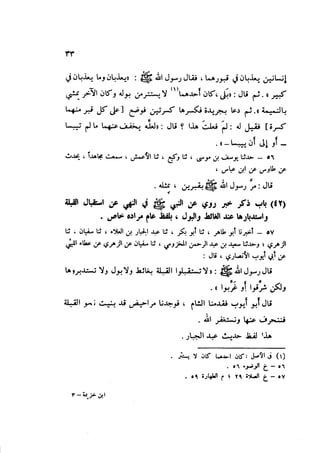 ٣٣
إنسانين يعذبان في قبورهما ، فقال رسول الله ﷺ : « يعذبان وما يعذبان في
كبير » ثم قال : « بلى ، كان أحدهما (١) لا يستتر من بوله وكان الآخر يمشي
بالنميمة » . ثم دعا بجريدة فكسرها كسرتين فوضع [ على كل قبر منهما
كسرة ] فقيل له : لم فعلت هذا ؟ قال : « لعله يخفف عنهما ما لم ييبسا
ـ أو إلى أن ييبسا » .
٥٦ ـ حدثنا يوسف بن موسى ، ثنا وكيع ، ثنا الأعمش ، سمعت مجاهدا ، يحدث
عن طاوس عن ابن عباس ،
قال : مر رسول الله ﷺ بقبرين ، مثله .
(٤٢) باب ذكر خبر روي عن النبي ﷺ في النهي عن استقبال القبلة
واستدبارها عند الغائط والبول ، بلفظ عام مراده خاص .
٥٧ ـ أخبرنا أبو طاهر ، ثنا أبو بكر ، ثنا عبد الجبار بن العلاء ، ثنا سفيان ، ثنا
الزهري ، وحدثنا سعيد بن عبد الرحمن المخزومي ، ثنا سفيان عن الزهري عن عطاء الليثي
عن أبي أيوب الأنصاري ، قال :
قال رسول الله ﷺ : « لا تستقبلوا القبلة بغائط ولا بول ولا تستدبروها
ولكن شرقوا أو غربوا » .
قال أبو أيوب فقدمنا الشام ، فوجدنا مراحيض قد بنيت نحو القبلة
فننحرف عنها ونستغفر الله .
هذا لفظ حديث عبد الجبار .
(١) في الأصل : كان أحدهما كان لا يستتر .
٥٦ ـ خ الوضوء ٥٦ .
٥٧ ـ خ الصلاة ٢٩ ؛ م الطهارة ٥٩ .
ابن خزيمة ـ ٣